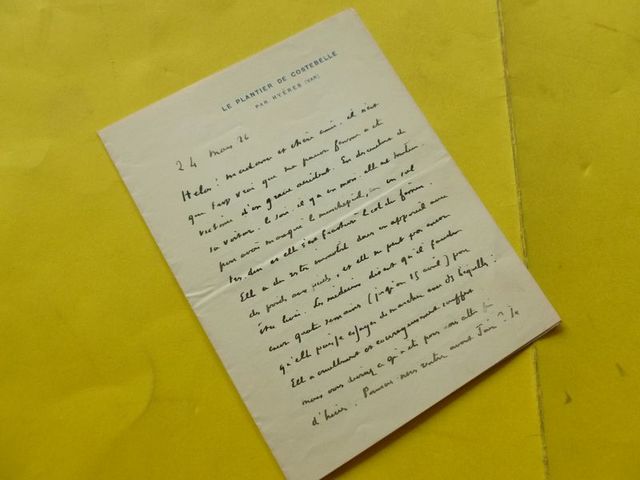 LE PLANTIER DE COSTEBELLE
PAR HYÈRES (VAR)
24 mars 26
Helas! madame et chère amie. il n'est
que trop vrai que ma pauvre femme a été
victime d'un grave accident. En descendant de
sa voiture, le soir, il y a un mois elle est tombée
pour avoir manqué le marchepied,
et elle s'est fracturé le col du fémur.
Elle a du rester immobile dans un appareil avec
des poids aux pieds, et elle ne peut pas encore
être levée. Les médecins disent qu'il faudra
encore quatre semaines (jusqu'au 15 avril) pour
qu'elle puisse essayer de marcher avec des béquilles.
Elle a cruellement et courageusement souffert
mais vous devinez ce qu'a été pour vous
d'hiver. Pourrons nous rentrer avant Juin? Je